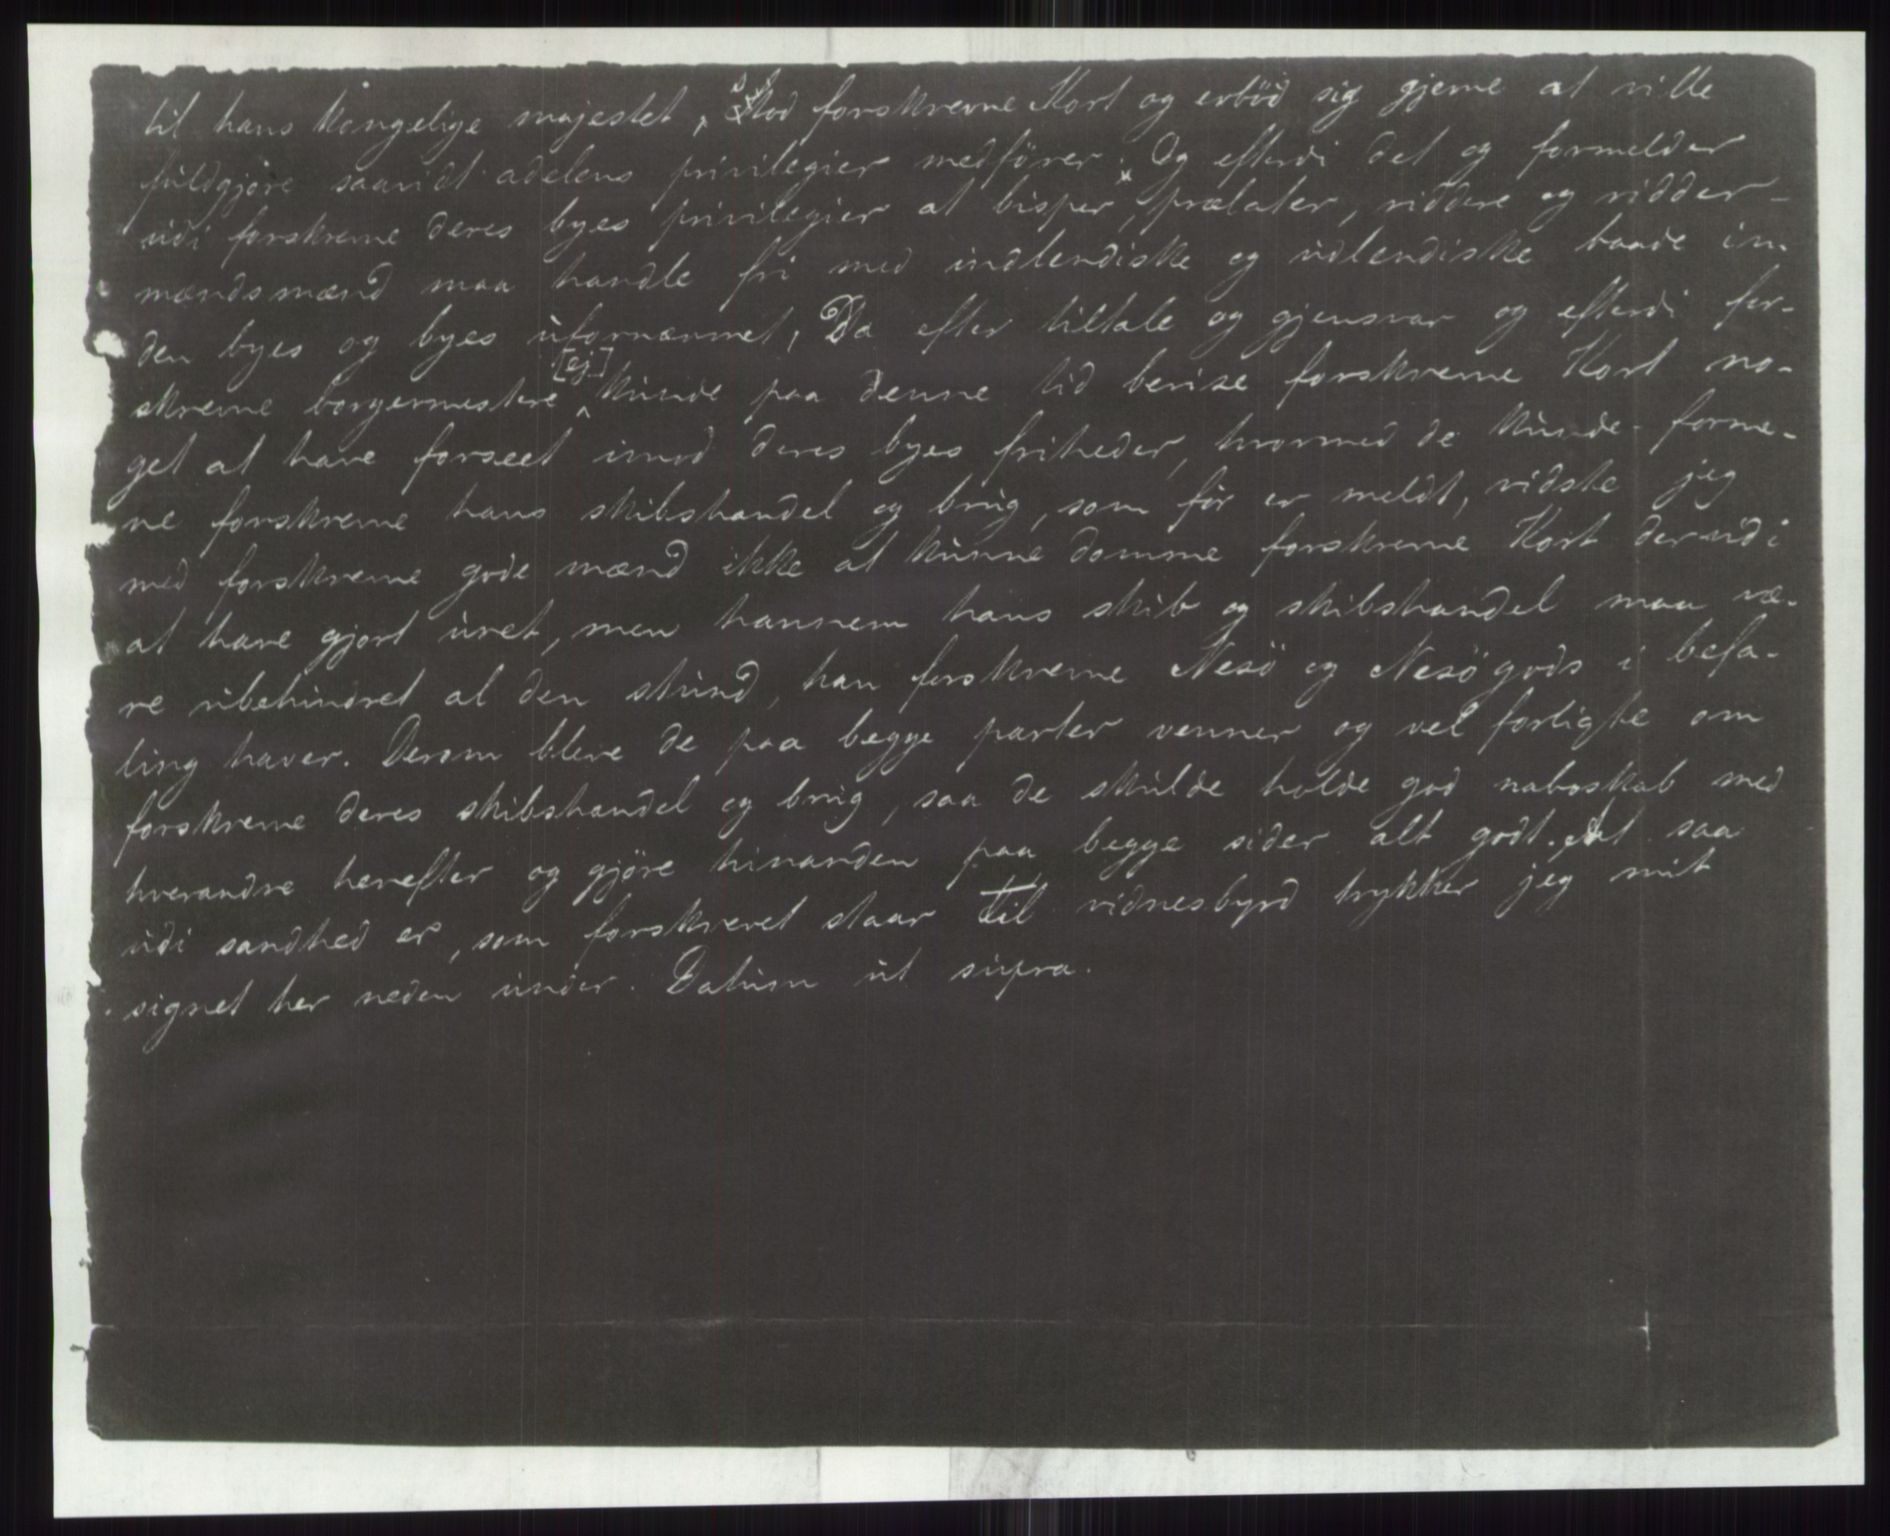 til hans kongelige majestet, Stod forskrevne Kort og erbød sig gjerne at ville
fuldgjöre saavidt adelens privilegier medförer. Og efterdi det og formelder
udi forskrevne deres byes privilegier at bisper, prælater, riddere og ridder-
mændsmænd maa handle fri med indlendiske og udlendiske baade in-
den byes og byes ufornærmet, Da efter tiltale og gjensvar og efterdi for-
skrevne borgermestere [ej] kunde paa denne tid bevise forskrevne Kort no-
get at have forseet imod deres byes friheder, hvormed de kunde forme-
ne forskrevne hans skibshandel og brug, som för er meldt, vidste jeg
med forskrevne gode mænd ikke at kunne domme forskrevne Kort derudi
at have gjort uret, men hannem hans skib og skibshandel maa væ-
re ubehindret al den stund, han forskrevne Nesö og Nesögods i befa-
ling haver. Derom bleve de paa begge parter venner og vel forligte om
forskrevne deres skibshandel og brug, saa de skulde holde god naboskab med
hverandre herefter og gjöre hinanden paa begge sider alt godt. At saa
udi sandhed er, som forskrevet staar Til vidnesbyrd trykker jeg mit
signet her neden under. Datum ut supra.